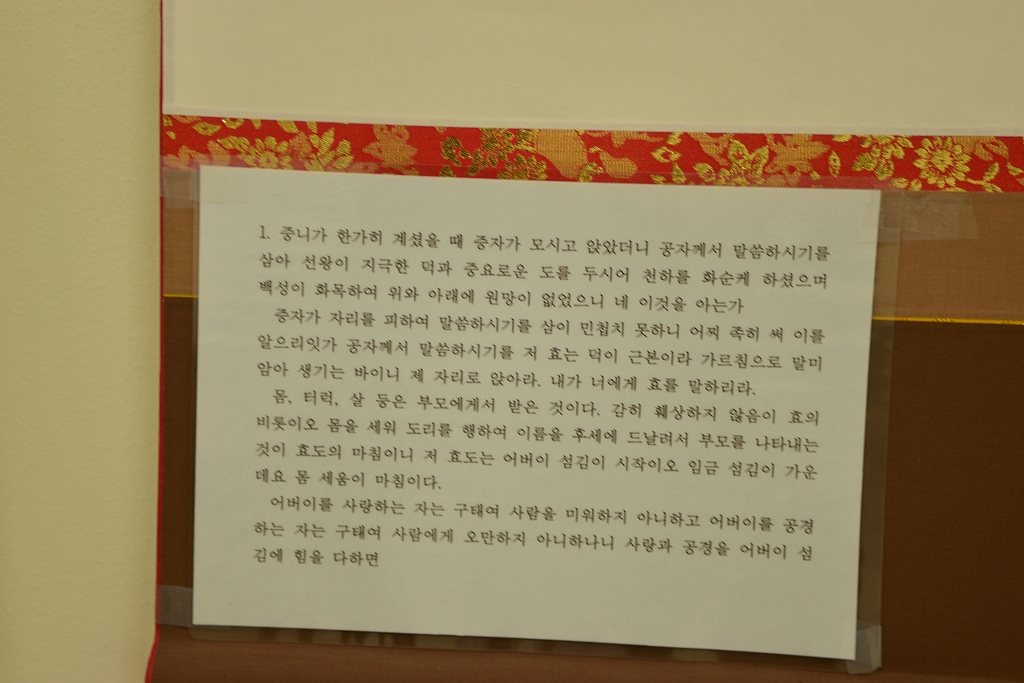 1. 중니가 한가히 계셨을 때 증자가 모시고 앉았더니 공자께서 말씀하시기를
삼아 선왕이 지극한 덕과 중요로운 도를 두시어 천하를 화순케 하셨으며
백성이 화목하여 위와 아래에 원망이 없었으니 네 이것을 아는가
증자가 자리를 피하여 말씀하시기를 삼이 민첩치 못하니 어찌 족히 써 이를
알으리잇가 공자께서 말씀하시기를 저 효는 덕이 근본이라 가르침으로 말미
암아 생기는 바이니 제 자리로 앉아라. 내가 너에게 효를 말하리라.
몸, 터럭, 살 등은 부모에게서 받은 것이다. 감히 훼상하지 않음이 효의
비롯이오 몸을 세워 도리를 행하여 이름을 후세에 드날려서 부모를 나타내는
것이 효도의 마침이니 저 효도는 어버이 섬김이 시작이오 임금 섬김이 가운
데요 몸 세움이 마침이다.
어버이를 사랑하는 자는 구태여 사람을 미워하지 아니하고 어버이를 공경
하는 자는 구태여 사람에게 오만하지 아니하나니 사랑과 공경을 어버이 섬
김에 힘을 다하면